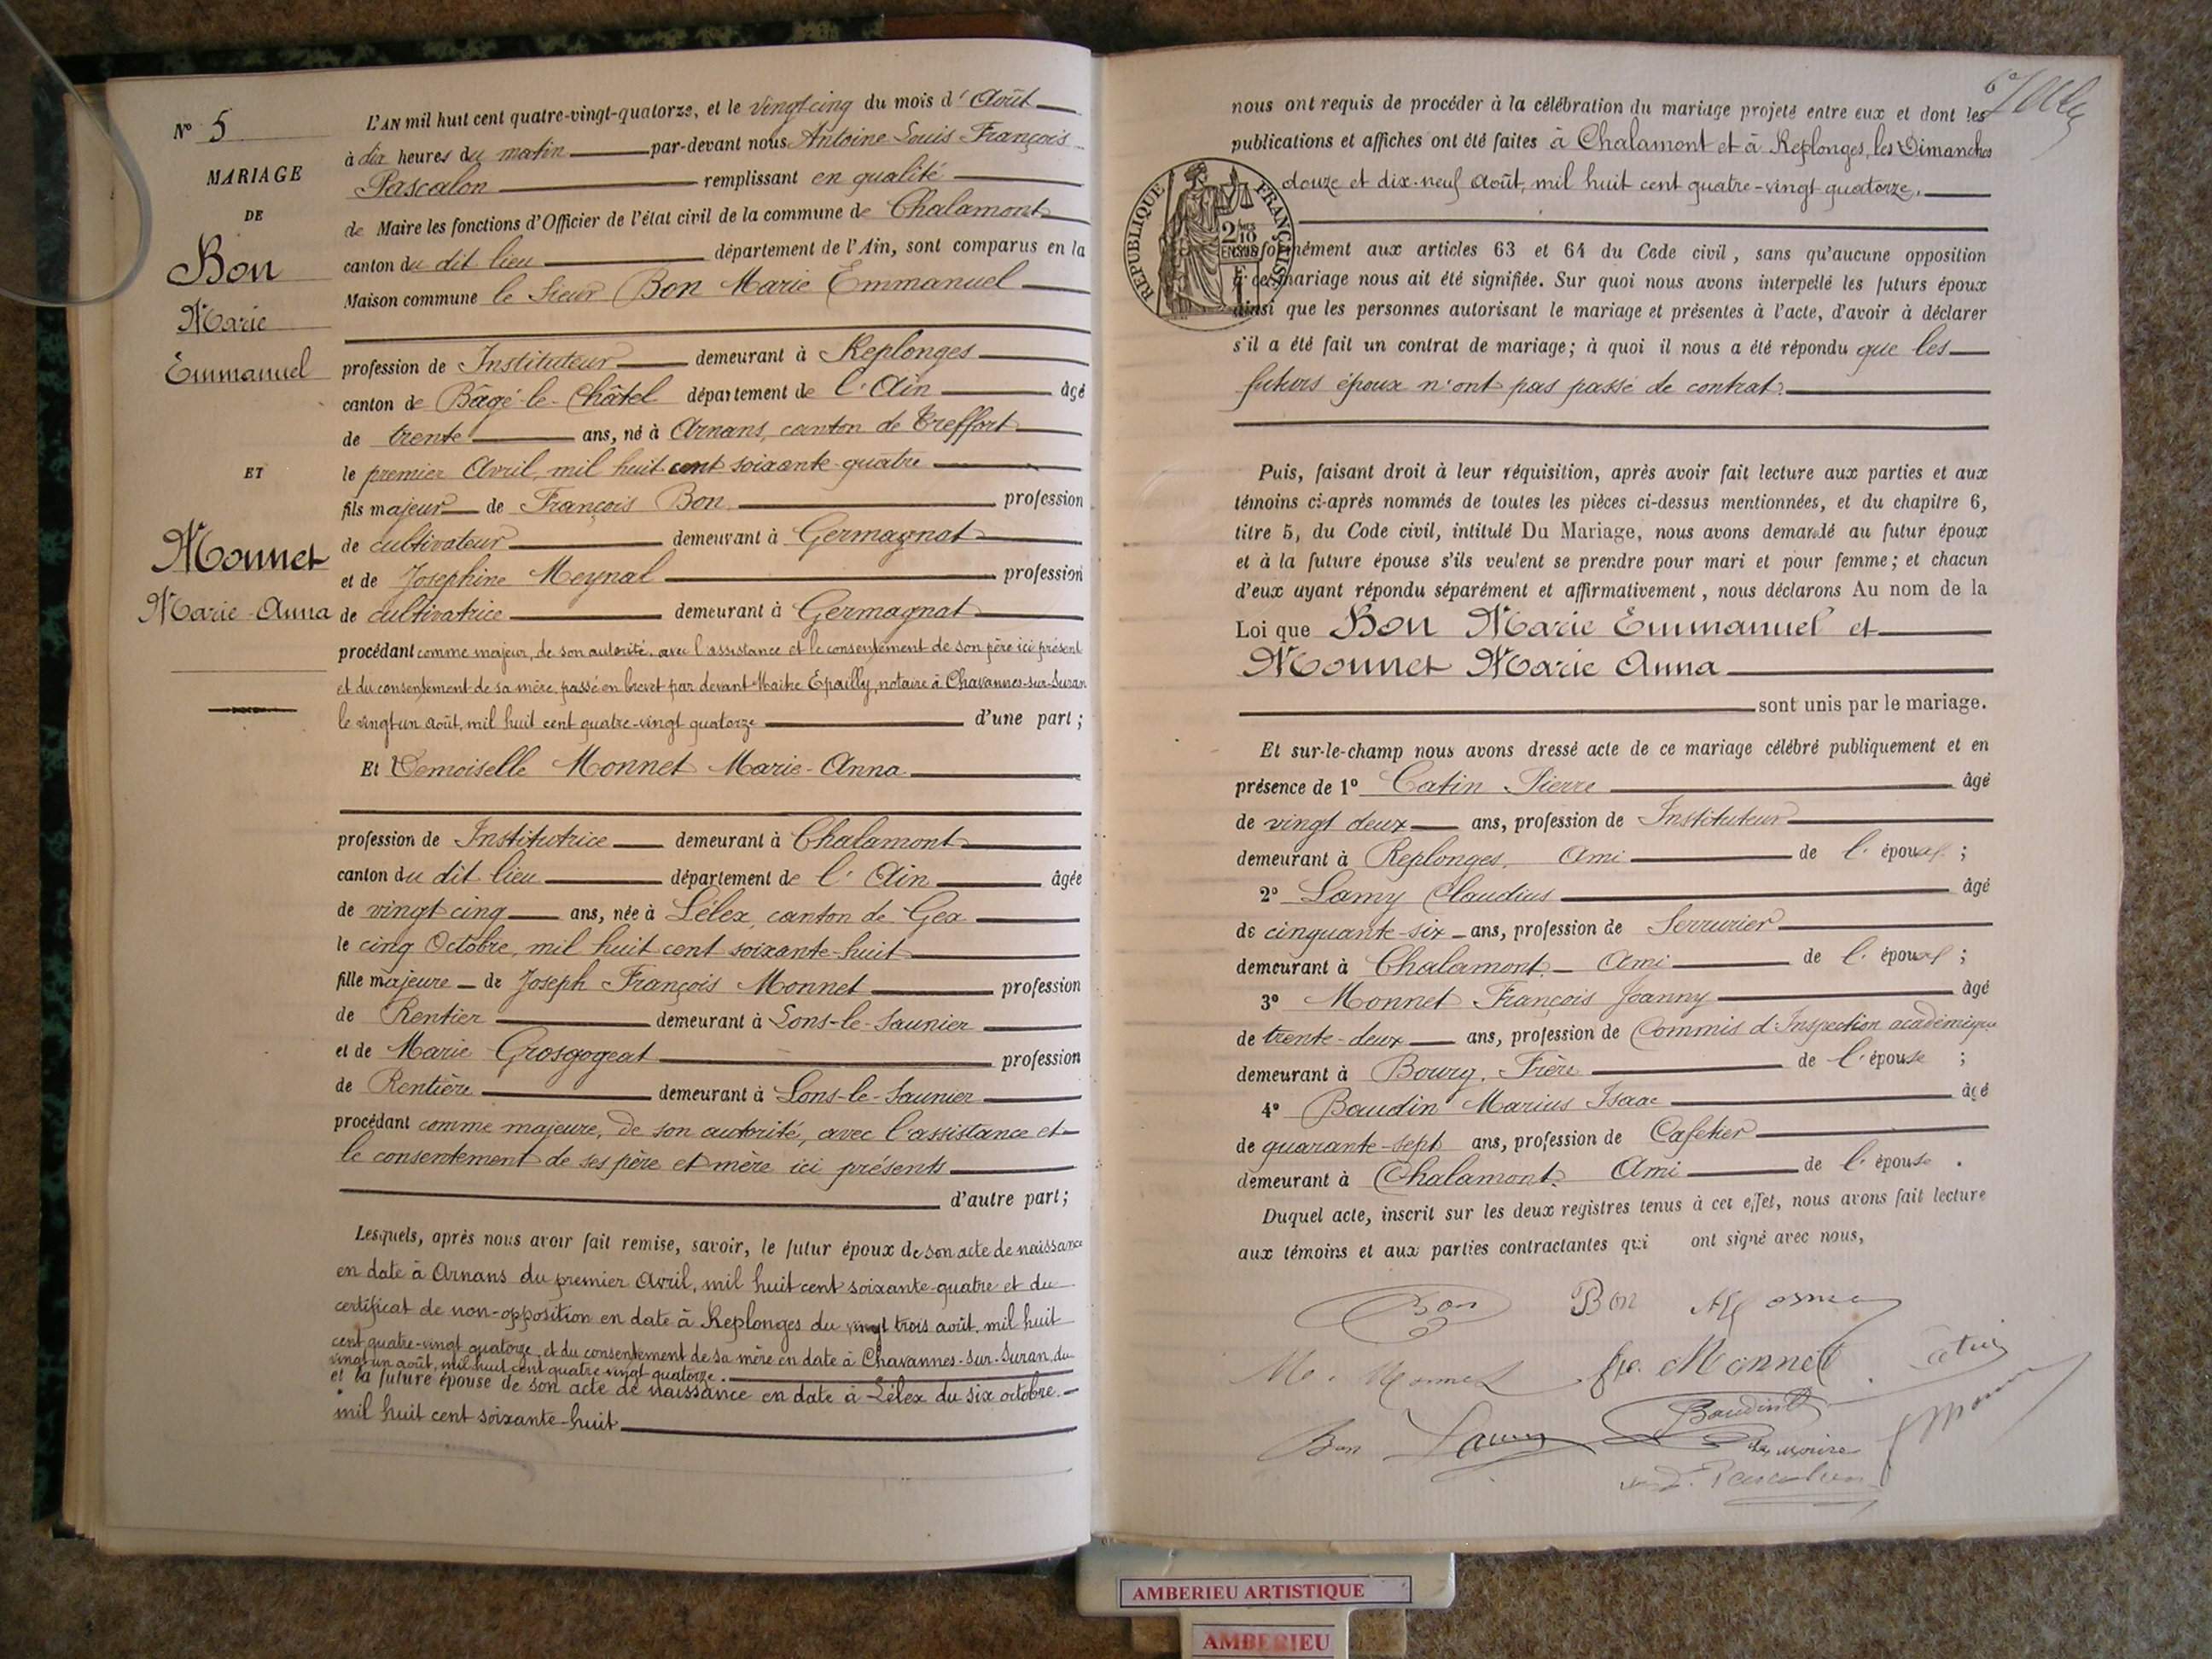 N° 5
MARIAGE
DE
Bon
Marie
Emmanuel
ET
Monnet
Marie-Anna
L'AN mil huit cent quatre-vingt-quatorze, et le vingt cinq du mois d'Août
à dix heures du matin par-devant nous Antoine Louis François
Pascalon remplissant en qualité
de Maire les fonctions d'Officier de l'état civil de la commune de Chalamont
canton du dit lieu département de l'Ain, sont comparus en la
Maison commune le Sieur Bon Marie Emmanuel
profession de Instituteur demeurant à Replonges
canton de Bâgé-le-Châtel département de l'Ain âgé
de trente ans, né à Arnans, canton de Treffort
le premier Avril, mil huit cent soixante-quatre
fils majeur de François Bon profession
de cultivateur demeurant à Germagnat
et de Josephine Meynal profession
de cultivatrice demeurant à Germagnat
procédant comme majeur, de son autorité, avec l'assistance et le consentement de son père ici présent
et du consentement de sa mère, passé en brevet par devant Maître Epailly, notaire à Chavannes-sur-Suran
le vingt un août, mil huit cent quatre-vingt quatorze d'une part;
Et Demoiselle Monnet Marie-Anna
profession de Institutrice demeurant à Chalamont
canton du dit lieu département de l'Ain âgée
de vingt cinq ans, née à Lélex, canton de Gex
le cinq Octobre, mil huit cent soixante-huit
fille majeure de Joseph François Monnet profession
de Rentier demeurant à Lons-le-Saunier
et de Marie Grosgogeat profession
de Rentière demeurant à Lons-le-Saunier
procédant comme majeure, de son autorité, avec l'assistance et
le consentement de ses père et mère ici présents
d'autre part;
Lesquels, après nous avoir fait remise, savoir, le futur époux de son acte de naissance
en date à Arnans du premier Avril, mil huit cent soixante-quatre et du
certificat de non-opposition en date à Replonges du vingt trois août, mil huit
cent quatre-vingt quatorze, et du consentement de sa mère en date à Chavannes-sur-Suran, du
vingt un août, mil huit cent quatre vingt quatorze.
et la future épouse de son acte de naissance en date à Lélex du six octobre
mil huit cent soixante-huit
nous ont requis de procéder à la célébration du mariage projeté entre eux et dont les
publications et affiches ont été faites à Chalamont et à Replonges, les Dimanches
douze et dix-neuf Août, mil huit cent quatre-vingt quatorze.
RÉPUBLIQUE FRANÇAISE
2/10
EN SUS
conformément aux articles 63 et 64 du Code civil, sans qu'aucune opposition
à ce mariage nous ait été signifiée. Sur quoi nous avons interpellé les futurs époux
ainsi que les personnes autorisant le mariage et présentes à l'acte, d'avoir à déclarer
s'il a été fait un contrat de mariage; à quoi il nous a été répondu que les
futurs époux n'ont pas passé de contrat.
Puis, faisant droit à leur réquisition, après avoir fait lecture aux parties et aux
témoins ci-après nommés de toutes les pièces ci-dessus mentionnées, et du chapitre 6,
titre 5, du Code civil, intitulé Du Mariage, nous avons demandé au futur époux
et à la future épouse s'ils veulent se prendre pour mari et pour femme; et chacun
d'eux ayant répondu séparément et affirmativement, nous déclarons Au nom de la
Loi que Bon Marie Emmanuel et
Monnet Marie Anna
sont unis par le mariage.
Et sur-le-champ nous avons dressé acte de ce mariage célébré publiquement et en
présence de 1° Catin Pierre âgé
de vingt deux ans, profession de Instituteur
demeurant à Replonges, Ami de l'époux ;
2° Lamy Claudius âgé
de cinquante-six ans, profession de Serrurier
demeurant à Chalamont. Ami de l'époux ;
3° Monnet François Joanny âgé
de trente-deux ans, profession de Commis d'Inspection académique
demeurant à Bourg. Frère de l'épouse ;
4° Baudin Marius Isaac âgé
de quarante-sept ans, profession de Cafetier
demeurant à Chalamont. Ami de l'épouse .
Duquel acte, inscrit sur les deux registres tenus à cet effet, nous avons fait lecture
aux témoins et aux parties contractantes qui ont signé avec nous,
Bon Bon
Monnet Monnet Catin
Baudin
Bon Lamy Le maire
Pascalon
AMBERIEU ARTISTIQUE
AMBERIEU